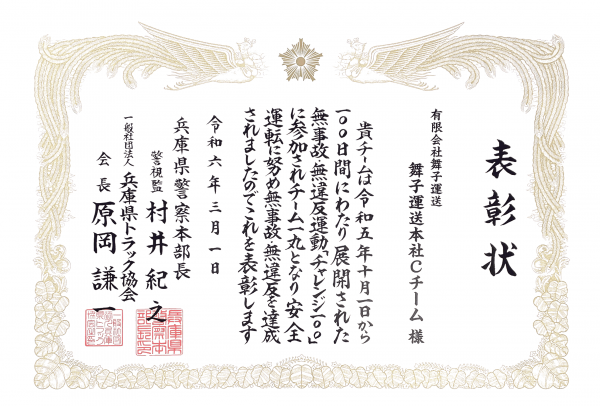 表彰状
有限会社舞子運送
舞子運送本社Cチーム 様
貴チームは令和五年十月一日から
一〇〇日間にわたり展開された
無事故・無違反運動「チャレンジ一〇〇」
に参加されチーム一丸となり安全
運転に努め無事故・無違反を達成
されましたのでこれを表彰します
令和六年三月一日
兵庫県警察本部長
警視監 村井紀之
一般社団法人 兵庫県トラック協会
会長 原岡謙一